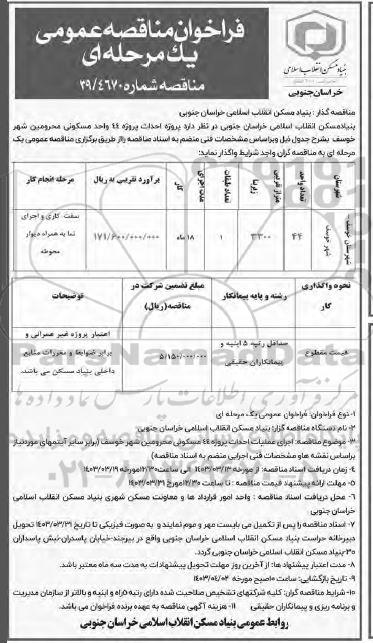 فراخوان مناقصه عمومی
یک مرحله ای
مناقصه شماره ۳۹/۴۶۷۰
بنیاد مسکن انقلاب اسلامی
خراسان جنوبی
مناقصه گذار : بنیاد مسکن انقلاب اسلامی خراسان جنوبی
بنیادمسکن انقلاب اسلامی خراسان جنوبی در نظر دارد پروژه احداث پروژه ۴۴ واحد مسکونی محرومین شهر
خوسف بشرح جدول ذیل وبراساس مشخصات فنی منضم به اسناد مناقصه رااز طریق برگزاری مناقصه عمومی یک
مرحله ای به مناقصه گران واجد شرایط واگذار نماید:
شهرستان تعداد واحد متراژ تقریبی زیربنا تعداد طبقات مدت اجرای کار برآورد تقریبی به ریال مرحله انجام کار
شهرستان خوسف شهر خوسف ۴۴ ۳۳۰۰ ۱ ۱۸ ماه ۱۷۱/۶۰۰/۰۰۰/۰۰۰ سفت کاری و اجرای
نما به همراه دیوار
محوطه
نحوه واگذاری کار رشته و پایه پیمانکار مبلغ تضمین شرکت در مناقصه(ریال) توضیحات
قیمت مقطوع حداقل رتبه ۵ ابنیه و پیمانکاران حقیقی ۵/۱۵۰/۰۰۰/۰۰۰ اعتبار پروژه غیر عمرانی و
برابر ضوابط و مقررات منابع
داخلی بنیاد مسکن می باشد.
۱- نوع فراخوان: فراخوان عمومی یک مرحله ای
۲- نام دستگاه مناقصه گزار: بنیاد مسکن انقلاب اسلامی خراسان جنوبی
۳- موضوع مناقصه: اجرای عملیات احداث پروژه ۴۴ مسکونی محرومین شهر خوسف (برابر سایر آیتمهای موردنیاز
براساس نقشه هاو مشخصات فنی اجرایی منضم به اسناد مناقصه)
۴- زمان دریافت اسناد مناقصه: از مورخه ۱۴۰۳/۰۳/۱۳ الی ساعت ۱۲/۳۰مورخه ۱۴۰۳/۰۳/۱۹
۵- مهلت ارائه پیشنهاد قیمت مناقصه : تا ساعت ۱۲/۳۰مورخ ۱۴۰۳/۰۳/۳۱
۶- محل دریافت اسناد مناقصه : واحد امور قرارداد ها و معاونت مسکن شهری بنیاد مسکن انقلاب اسلامی
خراسان جنوبی
۷- اسناد مناقصه را پس از تکمیل می بایست مهر و موم نمایند و به صورت فیزیکی تا تاریخ ۱۴۰۳/۰۳/۳۱ تحویل
دبیرخانه حراست بنیاد مسکن انقلاب اسلامی خراسان جنوبی واقع در بیرجند-خیابان پاسداران-نبش پاسداران
۳۰-بنیاد مسکن انقلاب اسلامی خراسان جنوبی گردد.
۸- مدت اعتبار پیشنهاد ها: از آخرین روز مهلت تحویل پیشنهادات به مدت سه ماه معتبر باشد.
۹- تاریخ بازگشایی: ساعت ۱۰صبح مورخه ۱۴۰۳/۰۴/۰۲
۱۰- شرایط مناقصه گران: کلیه شرکتهای تشخیص صلاحیت شده دارای رتبه ۵راه و ابنیه و بالاتر از سازمان مدیریت
و برنامه ریزی و پیمانکاران حقیقی ۱۱- هزینه آگهی مناقصه به عهده برنده فراخوان می باشد.
روابط عمومی بنیاد مسکن انقلاب اسلامی خراسان جنوبی